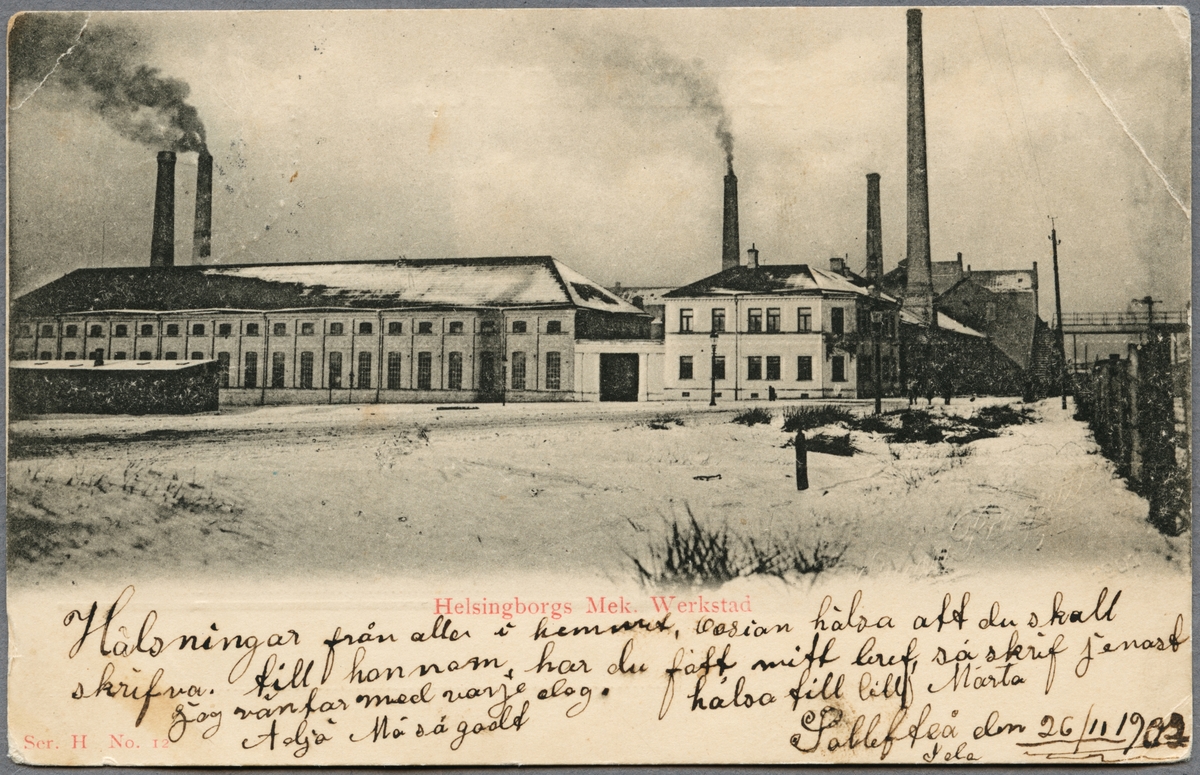 Helsingborgs Mek. Werkstad
Hälsningar från aller i hemmet, hälsa att du skall
skrifva. till honnom, har du fått mitt bref, så skrif jenast
Jag väntar med varje dag. hälsa till lill Märta
Adjö Må så godt
Sollefteå den 26/11 1902
Ser. H No. 12